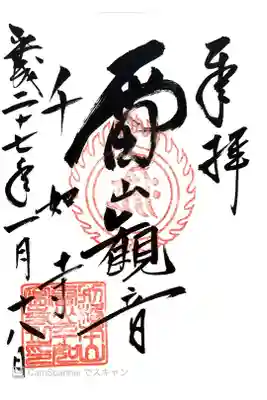 奉拝
雷山觀音
千如寺
平成二十七年一月十八日
CamScanner でスキャン